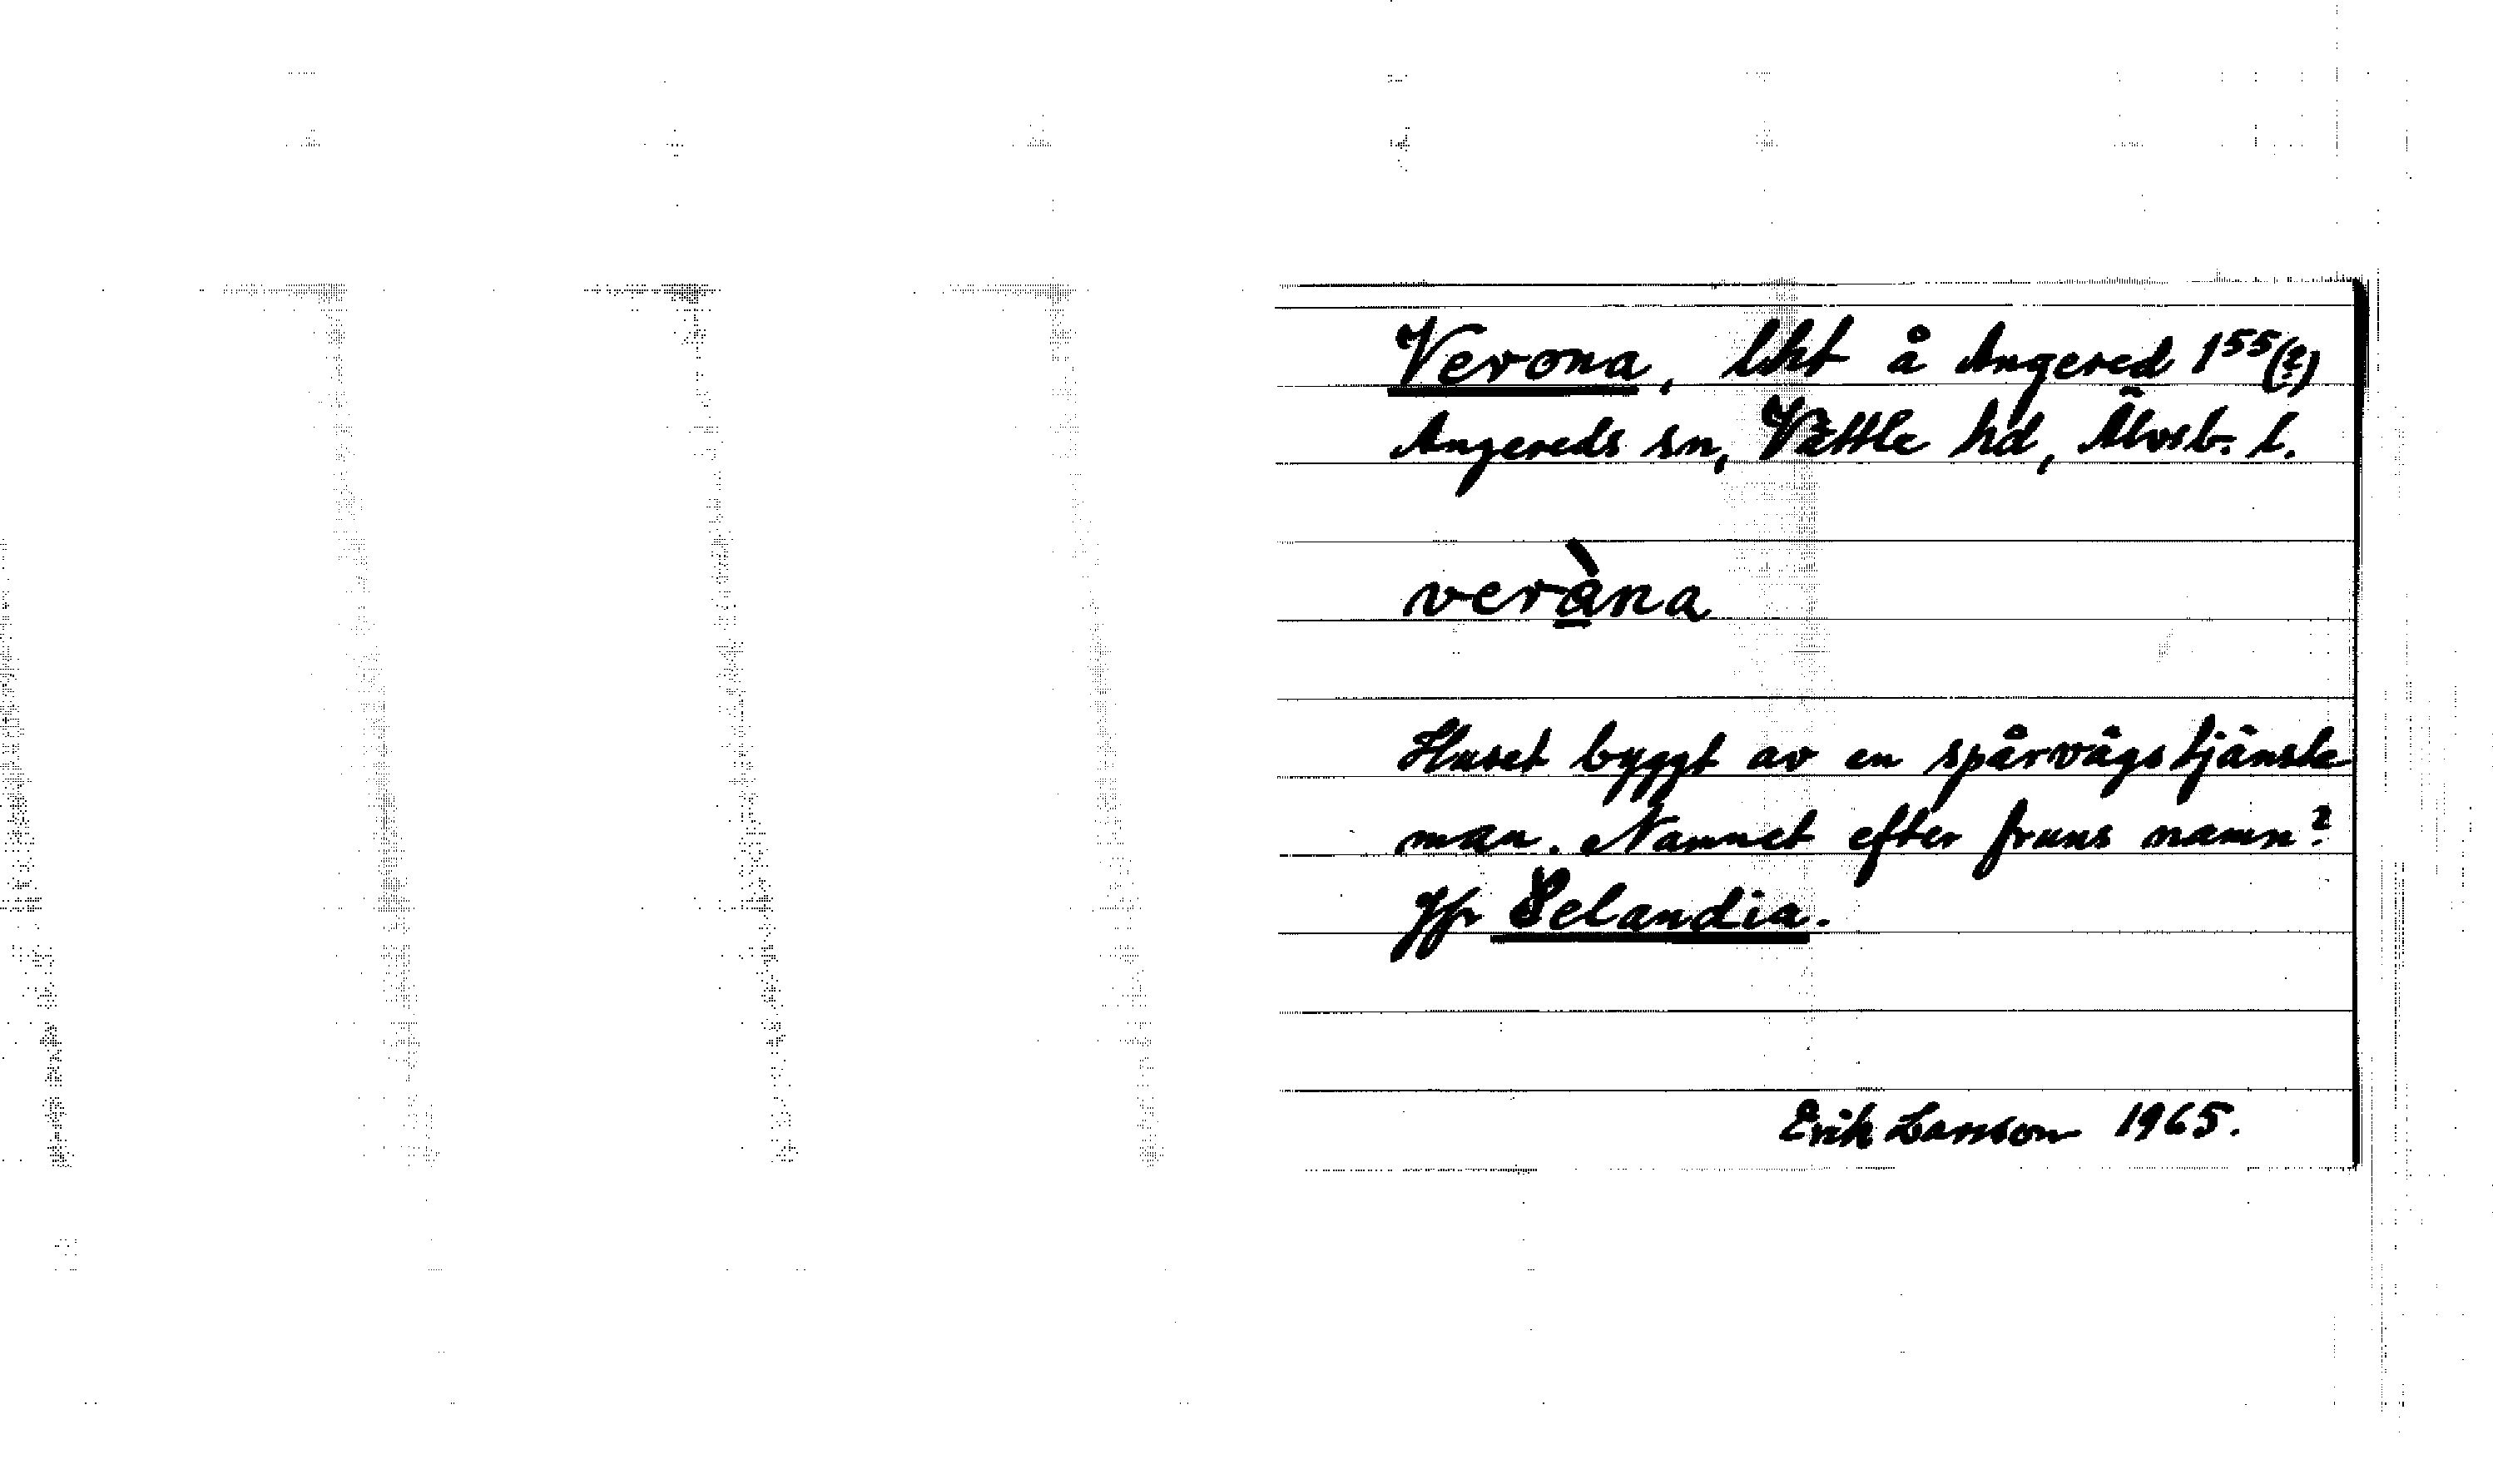 Verona, lht å Angered 1⁵⁵(?)
Angereds sn, Vättle hd, Älvsb. l.
veràna
Huset byggt av en spårvägstjänste
man. Namnet efter fruns namn?
Jfr Selandia.
Erik Larsson 1965.